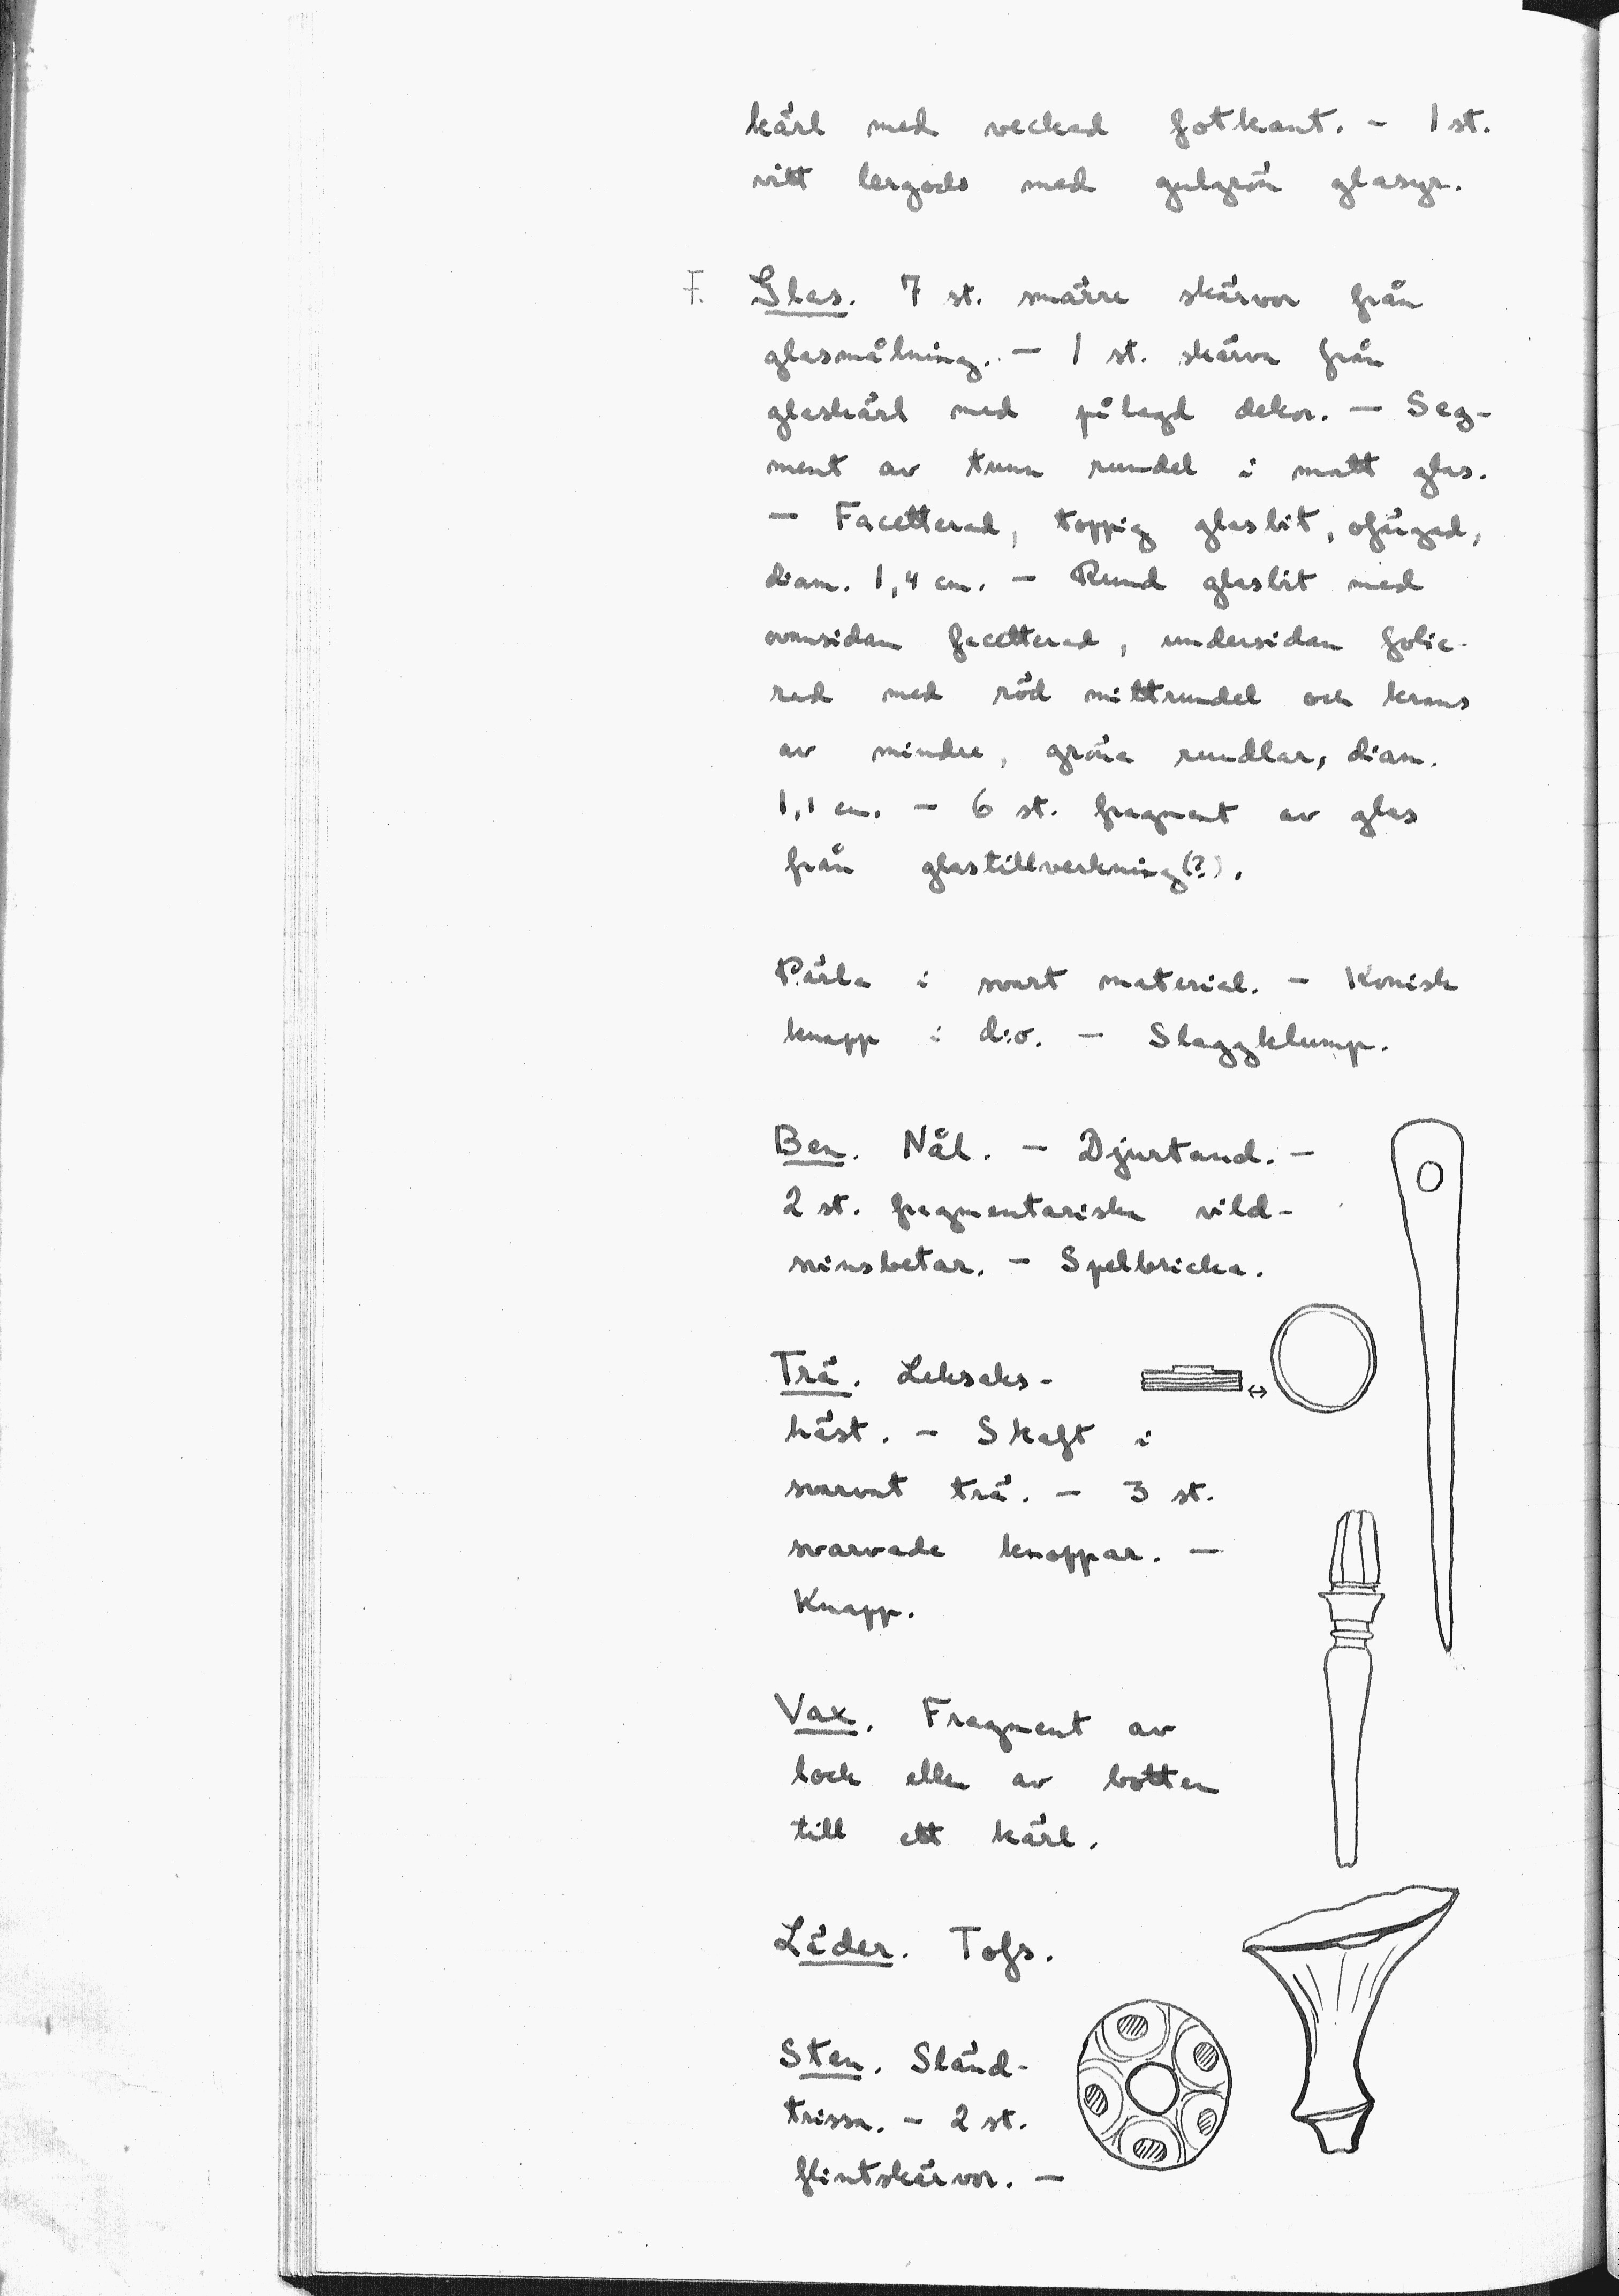 kärl med veckad fotkant. - 1 st.
vitt lergods med gulgrön glasyr.
F. Glas. 7 st. smärre skärvor från
glasmålning. - 1 st. skärva från
glaskärl med pålagd dekor. - Seg-
ment av tunn rundel i matt glas.
- Facetterad, toppig glasbit, ofärgad,
diam. 1,4 cm. - Rund glasbit med
ovansidan facetterad, undersidan folie-
rad med röd mittrundel och krans
av mindre, gröna rundlar, diam.
1,1 cm. - 6 st. fragment av glas
från glastillverkning(?).
Pärla i svart material. - Konisk
knapp i d:o. - Slaggklump.
Ben. Nål. - Djurtand. -
2 st. fragmentariska vild-
svinsbetar. - Spelbricka.
Trä. Leksaks-
häst. - Skaft i
svarvat trä. - 3 st.
svarvade knoppar. -
Knapp.
Vax. Fragment av
lock eller av botten
till ett kärl.
Läder. Tofs.
Sten. Sländ-
trissa. - 2 st.
flintskärvor. -